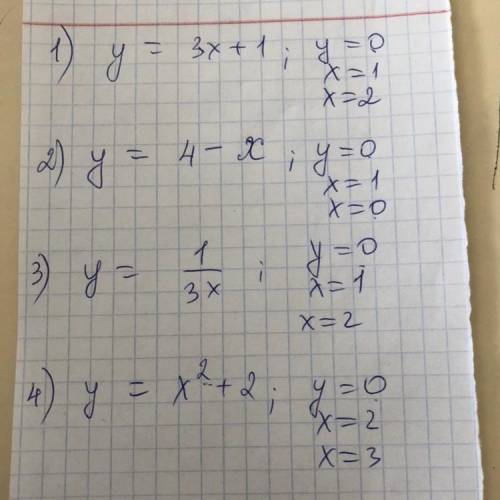 1) y = 3x+1; y=0
x=1
x=2
2) y = 4-x; y=0
x=1
x=0
3) y = 1/3x; y=0
x=1
x=2
4) y = x²+2; y=0
x=2
x=3